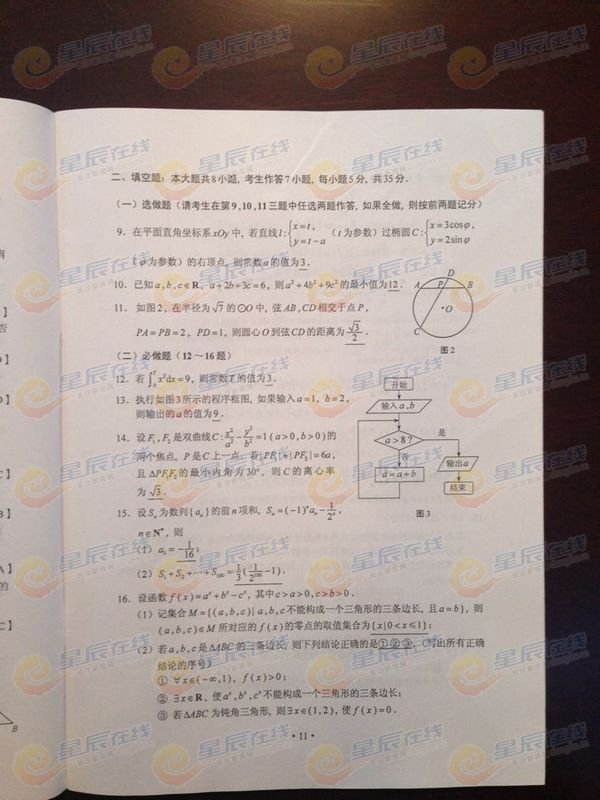 二、填空题：本大题共8小题，考生作答7小题，每小题5分，共35分．
（一）选做题（请考生在第9,10,11三题中任选两题作答，如果全做，则按前两题记分）
9．在平面直角坐标系xOy中，若直线l:{x=t, y=t-a （t为参数）过椭圆C:{x=3cosφ, y=2sinφ
（φ为参数）的右顶点，则常数a的值为3．
10．已知a,b,c∈R，a+2b+3c=6，则a²+4b²+9c²的最小值为12．
11．如图2，在半径为√7的⊙O中，弦AB,CD相交于点P，
PA=PB=2，PD=1，则圆心O到弦CD的距离为√3/2．
D
A
P
B
O
C
图2
（二）必做题（12～16题）
12．若∫₀ᵀx²dx=9，则常数T的值为3．
13．执行如图3所示的程序框图，如果输入a=1，b=2，
则输出的a的值为9．
14．设F₁,F₂是双曲线C:x²/a²-y²/b²=1(a>0,b>0)的
两个焦点，P是C上一点．若|PF₁|+|PF₂|=6a，
且ΔPF₁F₂的最小内角为30°，则C的离心率
为√3．
开始
输入a,b
a>8?
是
否
输出a
a=a+b
结束
图3
15．设Sₙ为数列{aₙ}的前n项和，Sₙ=(-1)ⁿaₙ-1/2ⁿ，
n∈N*，则
（1）a₃=-1/16；
（2）S₁+S₂+…+S₁₀₀=1/3(1/2¹⁰⁰-1)．
16．设函数f(x)=aˣ+bˣ-cˣ，其中c>a>0,c>b>0．
（1）记集合M={(a,b,c)|a,b,c不能构成一个三角形的三条边长，且a=b}，则
(a,b,c)∈M所对应的f(x)的零点的取值集合为{x|0<x≤1}；
（2）若a,b,c是ΔABC的三条边长，则下列结论正确的是①②③．（写出所有正确
结论的序号）
①∀x∈(-∞,1)，f(x)>0；
②∃x∈R，使aˣ,bˣ,cˣ不能构成一个三角形的三条边长；
③若ΔABC为钝角三角形，则∃x∈(1,2)，使f(x)=0．
·11·
B
星辰在线